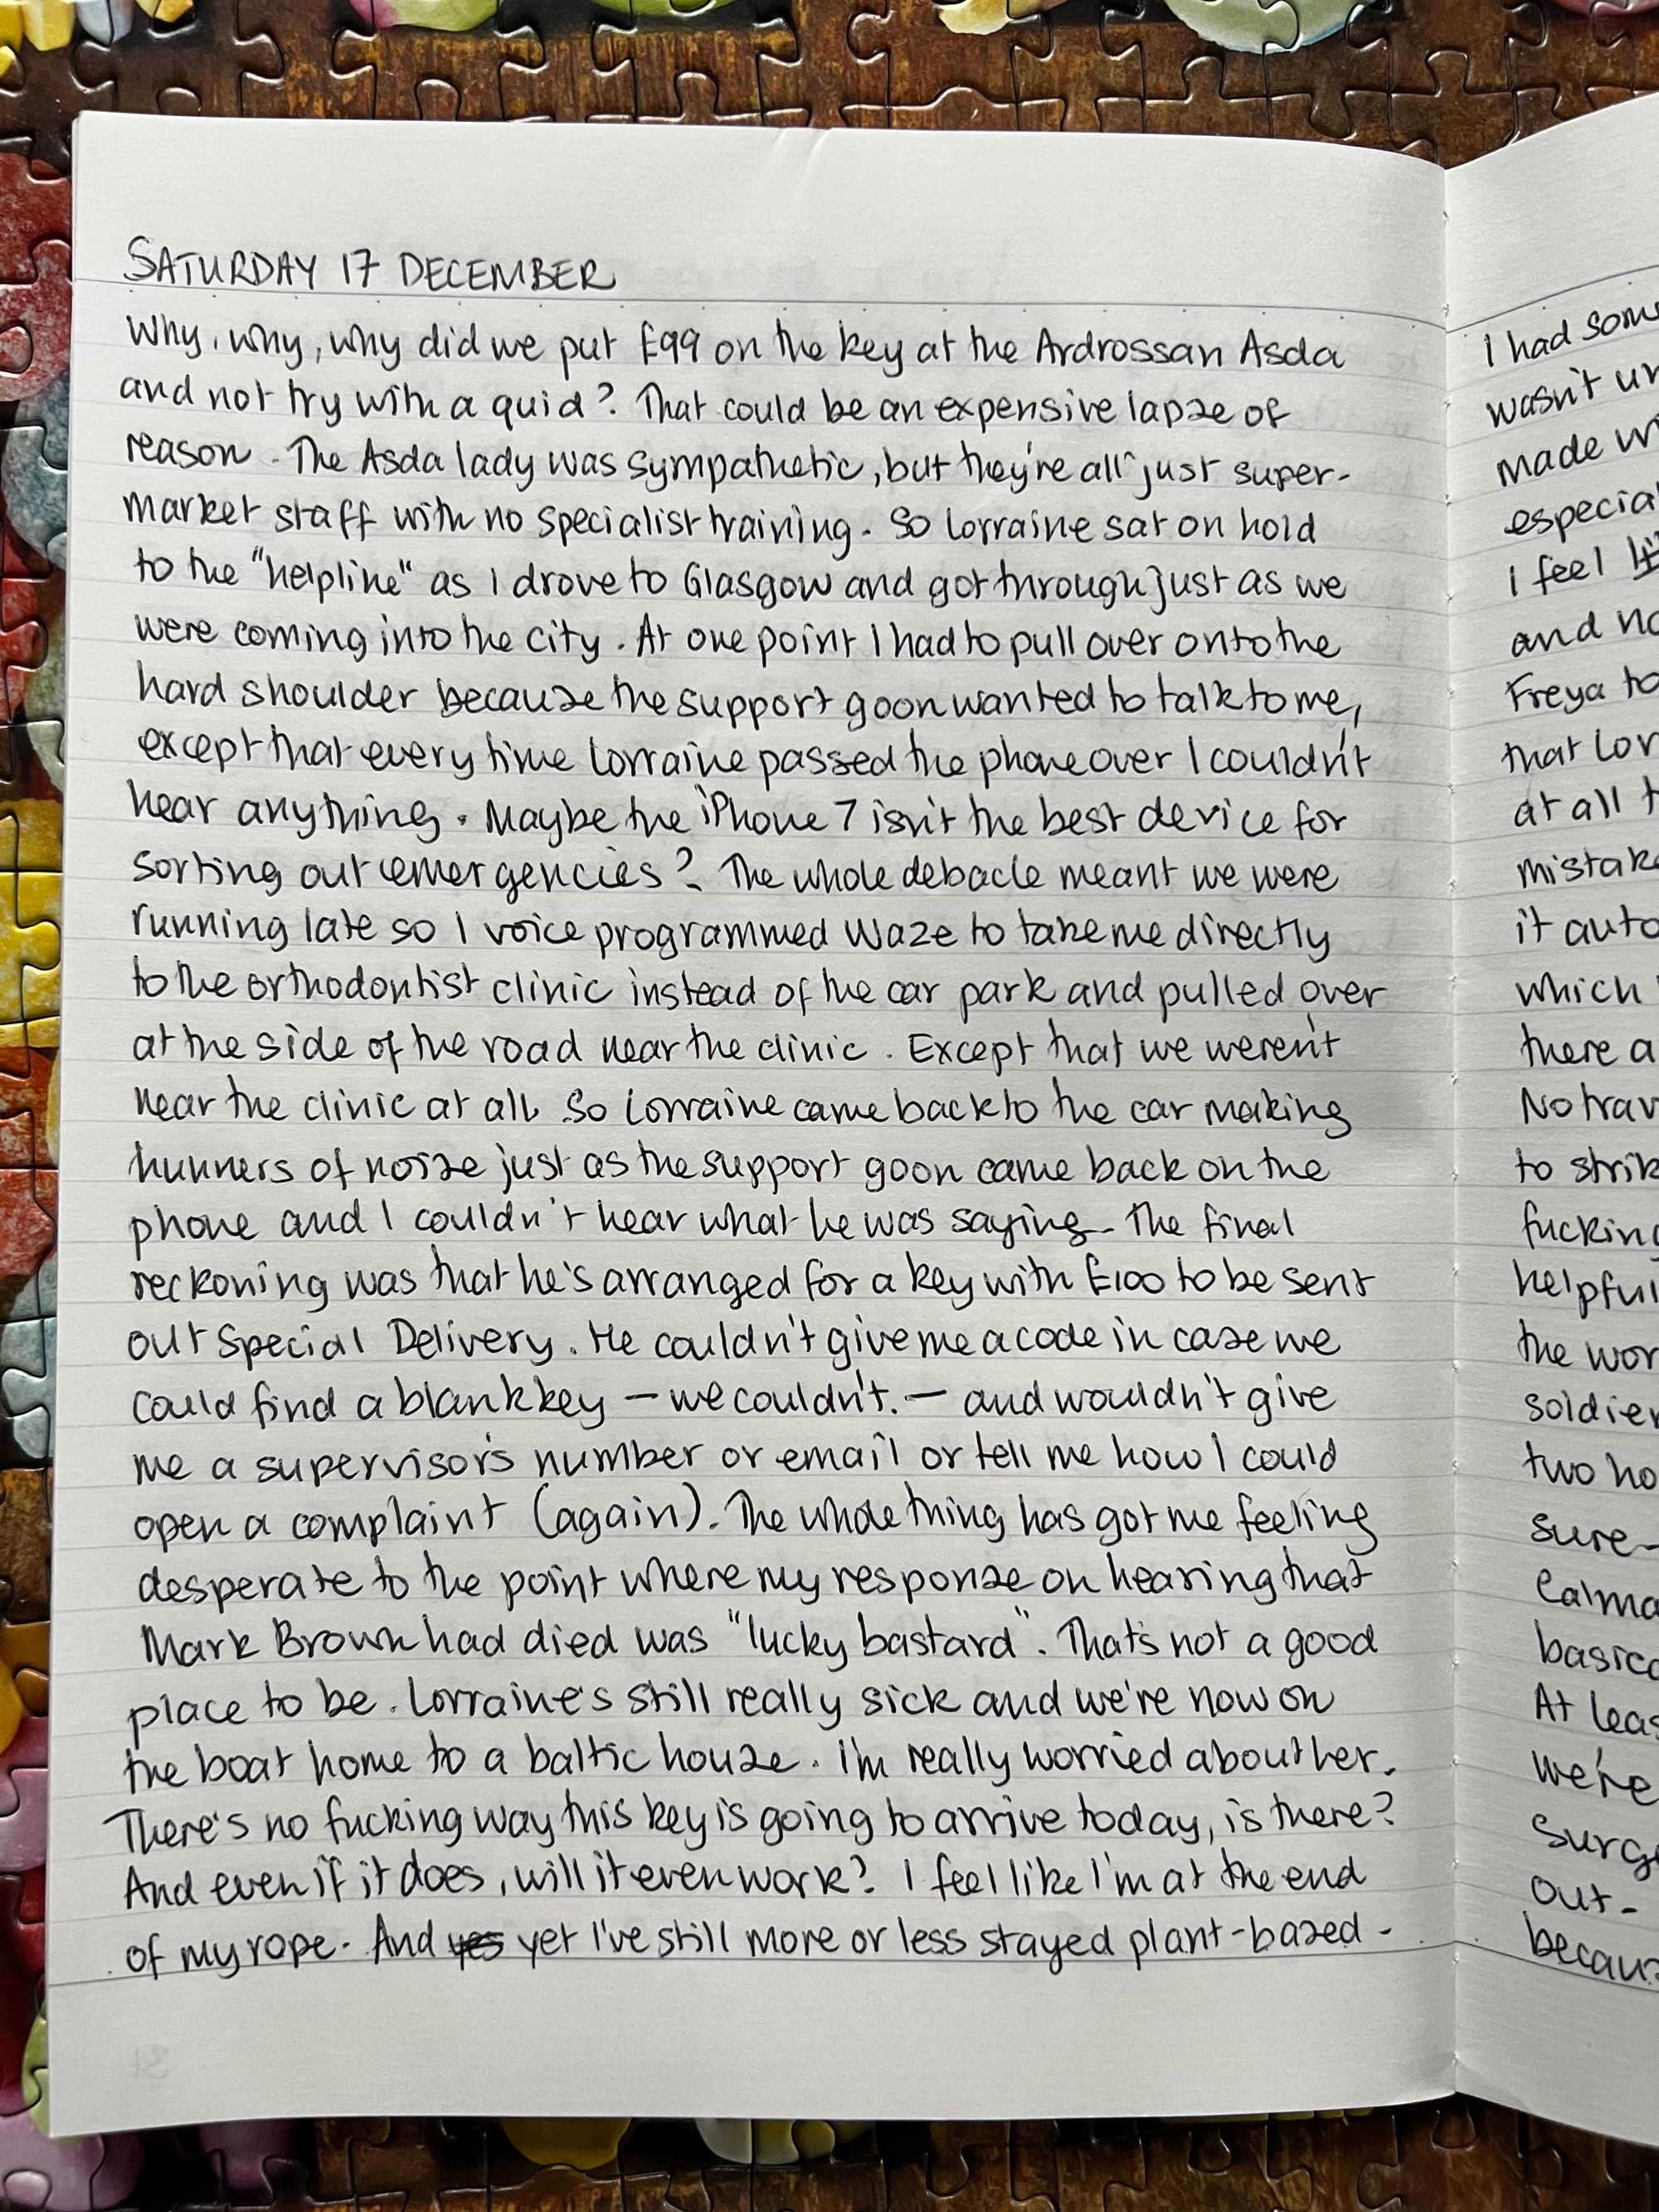 SATURDAY 17 DECEMBER
Why, why, why did we put £99 on the key at the Ardrossan Asda
and not try with a quid? That could be an expensive lapse of
reason. The Asda lady was sympathetic, but they're all just super-
market staff with no specialist training. So Lorraine sat on hold
to the "helpline" as I drove to Glasgow and got through just as we
were coming into the city. At one point I had to pull over onto the
hard shoulder because the support goon wanted to talk to me,
except that every time Lorraine passed the phone over I couldn't
hear anything. Maybe the iPhone 7 isn't the best device for
sorting out emergencies? The whole debacle meant we were
running late so I voice programmed Waze to take me directly
to the orthodontist clinic instead of the car park and pulled over
at the side of the road near the clinic. Except that we weren't
near the clinic at all. So Lorraine came back to the car making
hunners of noise just as the support goon came back on the
phone and I couldn't hear what he was saying. The final
reckoning was that he's arranged for a key with £100 to be sent
out Special Delivery. He couldn't give me a code in case we
could find a blank key – we couldn't. – and wouldn't give
me a supervisor's number or email or tell me how I could
open a complaint (again). The whole thing has got me feeling
desperate to the point where my response on hearing that
Mark Brown had died was "lucky bastard". That's not a good
place to be. Lorraine's still really sick and we're now on
the boat home to a baltic house. I'm really worried about her.
There's no fucking way this key is going to arrive today, is there?
And even if it does, will it even work? I feel like I'm at the end
of my rope. And yes yet I've still more or less stayed plant-based -
I had some
wasn't
made
I feel
and
Freya to
that
at all
mistake
it auto
which
there a
No
to strik
fucking
helpful
the
soldier
two
sure-
basic
At leas
we're
surge
out-
becaus